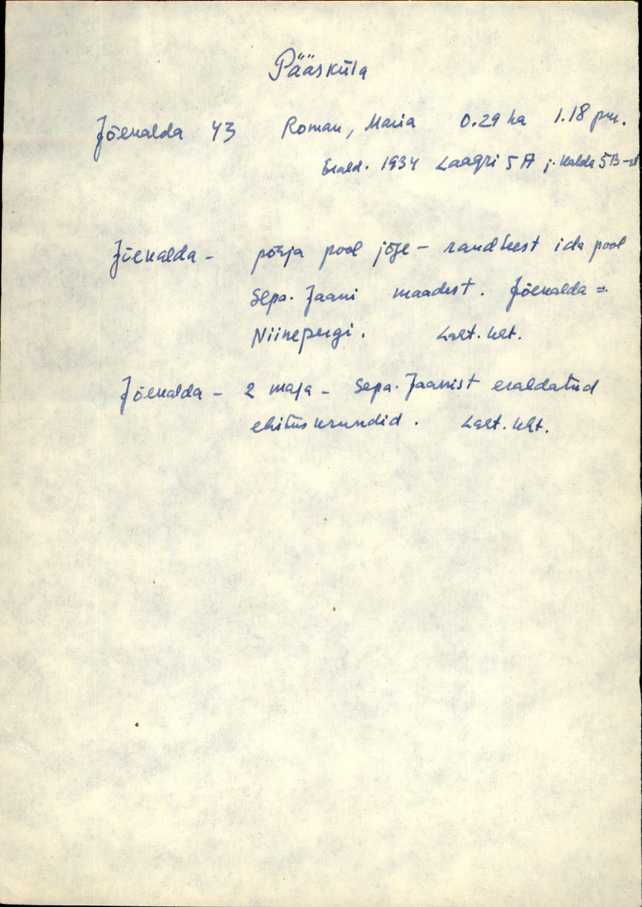 Pääsküla
Jõekalda 43 Roman, Maria 0.29 ha 1.18 pm.
Erald. 1934 Laagri 5A j. Kalda 5B-st
Jõekalda - põhja pool jõge - raudteest ida pool
Sepa-Jaani maadest. Jõekalda =
Niinepergi.
Jõekalda - 2 maja - Sepa-Jaanist eraldatud
ehituskrundid.